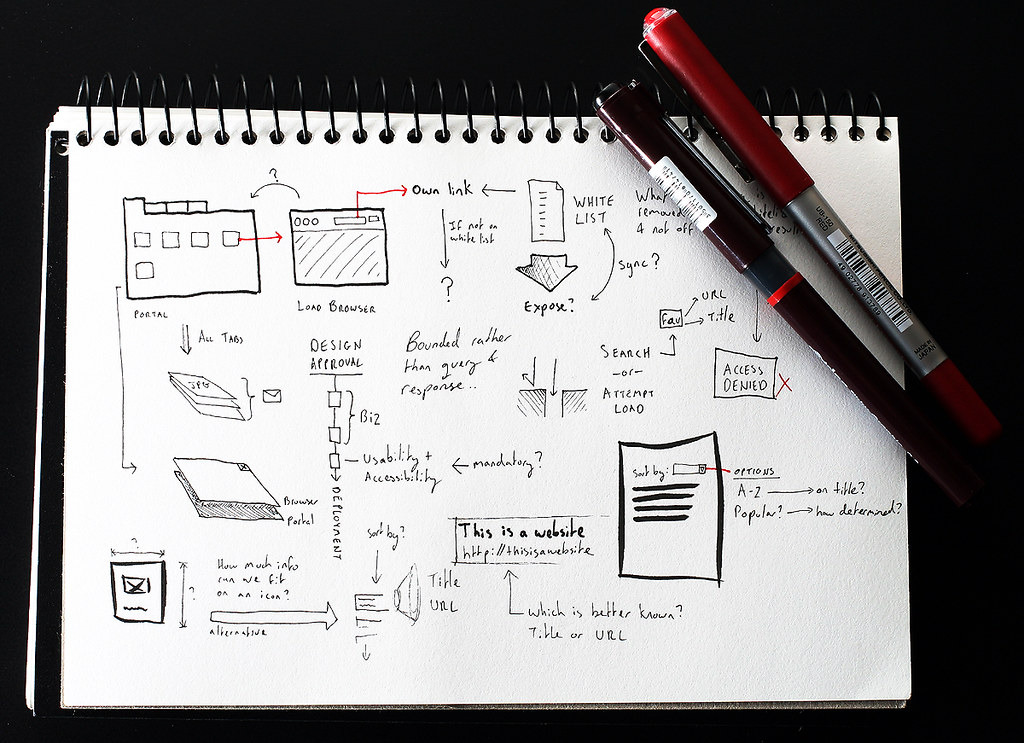 ?
Own link
WHITE
LIST
What
removed
& not off
result
If not on
white list
?
Sync?
Expose?
PORTAL
LOAD BROWSER
ALL TABS
JPG
DESIGN
APPROVAL
Biz
Usability +
Accessibility
mandatory?
DEPLOYMENT
Bounded rather
than query &
response...
Fav
URL
Title
SEARCH
-or-
ATTEMPT
LOAD
ACCESS
DENIED
X
Browser
Portal
sort by:
OPTIONS
A-Z
on title?
Popular?
how determined?
?
?
How much info
can we fit
on an icon?
alternative
sort by?
Title
URL
This is a website
http://thisisawebsite
which is better known?
Title or URL
UB-150
RED
MADE IN
JAPAN